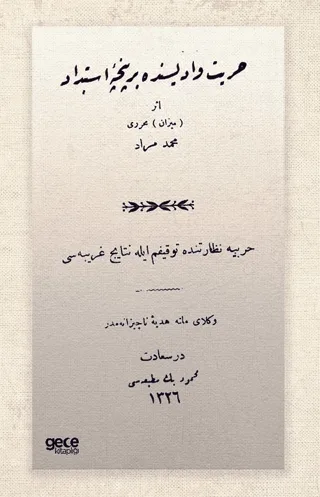 حريت واديسنده بر پنجهٔ استبداد
اثر
( ميزان ) محررى
محمد مراد
حربيه نظارتنده توقيفم ايله نتايج غريبه‌سى
وكلاى ملته هديهٔ ناچيزانه‌مدر
در سعادت
محمود بك مطبعه‌سى
١٣٢٦
gece
kitaplığı